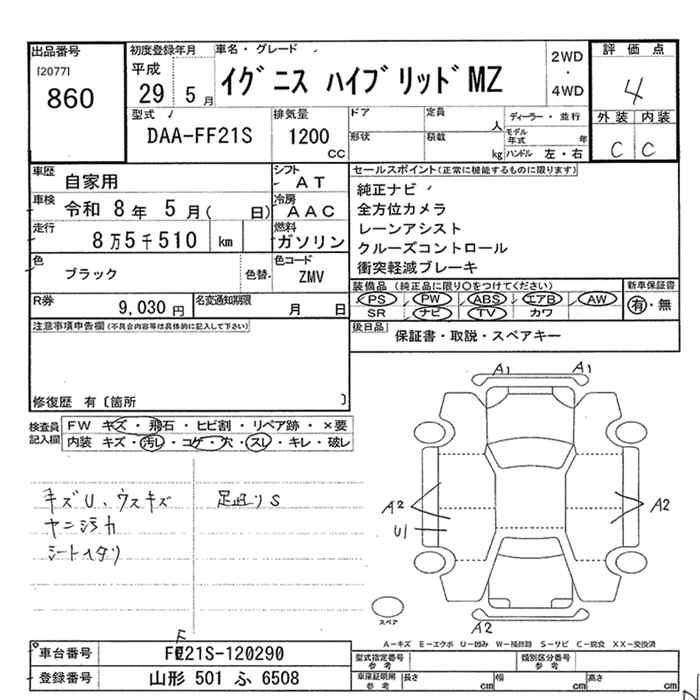 出品番号
[2077]
860
初度登録年月
平成
29 5月
車名・グレード
イグニス ハイブリッド MZ
2WD
・
4WD
評価点
4
外装 内装
C C
型式
DAA-FF21S
排気量
1200
CC
ドア
定員
人
ディーラー・並行
形状
積載
kg
モデル年式
年
ハンドル 左・右
車歴
自家用
シフト
AT
車検
令和 8年 5月( 日)
冷房
AAC
走行
8万5千510 km
燃料
ガソリン
色
ブラック
色替
色コード
ZMV
R券
9,030円
名変通知期限
月 日
セールスポイント(正常に機能するものに限ります)
純正ナビ
全方位カメラ
レーンアシスト
クルーズコントロール
衝突軽減ブレーキ
装備品 (純正品に限り○をつけてください)
新車保証書
PS PW ABS エアB AW
有・無
SR ナビ TV カワ
後日品
保証書・取説・スペアキー
注意事項申告欄(不具合内容等は具体的に記入して下さい)
修復歴 有〔箇所 〕
検査員記入欄
FW キズ・飛石・ヒビ割・リペア跡・×要
内装 キズ・汚レ・コゲ・穴・スレ・キレ・破レ
キズU、ウスキズ
ヤニ汚れ
シートヘタリ
足廻りS
A1
A1
A2
U1
A2
A2
スペア
A-キズ E-エクボ U-凹み W-補修跡 S-サビ C-腐食 XX-交換済
車台番号
FF21S-120290
F
登録番号
山形 501 ふ 6508
型式指定番号
参考
類別区分番号
参考
車庫証明用
参考
長さ
cm
幅
cm
高さ
cm